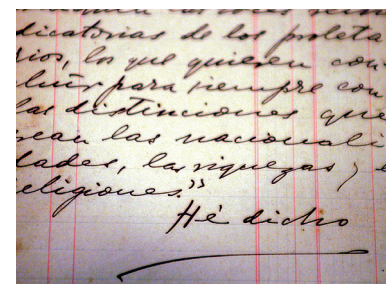 dicatorias de los proleta
rios, los que quieren con-
cluir para siempre con
las distinciones que
crean las nacionali
dades, las riquezas y
religiones."
Hé dicho